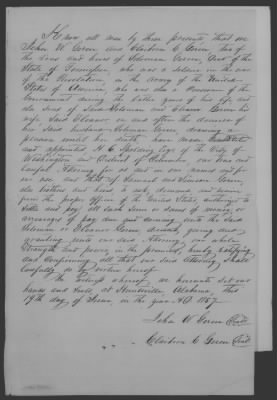 Know all men by these presents that we
John W. Green and Clairborn C Green two of
the sons and heirs of Solomon Green, Decd of the
State of Tennessee, who was a soldier in the war
of the Revolution, in the Army of the United
States of America, who was also a Pensioner of the
Government during the latter years of his life, and
also heirs of said Solomon and Eleanor Green his
wife. Said Eleanor, on and after the decease of
her said husband Solomon Green, drawing a
pension until her death, have made
and appointed H. C. Spalding Esqr of the City of
Washington and District of Columbia, our true and
lawful Attorney for us and in our names and for
our use and that of Samuel and Green,
also brothers and heirs, to ask, demand, and receive
from the proper officer of the United States, authority to
settle and pay, all such claims or sums of money, or
arrearages of pay due and coming unto the said
Solomon or Eleanor Green, deceased, giving and
granting unto our said Attorney, our whole
Strength and power, in the premises, hereby ratifying
and confirming all that our said Attorney shall
lawfully do by virtue hereof.
In witness whereof, we hereunto set our
hands and seals, at Huntsville, Alabama, this
19th day of , in the year A.D. 1857.
John W. Green (Seal)
Clairborn C Green (Seal)